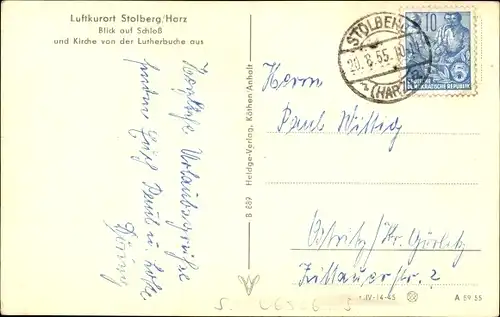 Luftkurort Stolberg/Harz
Blick auf Schloß
und Kirche von der Lutherbuche aus
Herzliche Urlaubsgrüße
Paul u. Lotte
B 689 Heldge-Verlag, Köthen/Anhalt
STOLBERG
20.8.55.
(HARZ)
10
DEMOKRATISCHE REPUBLIK
Herrn
Paul Wittig
Ostritz/Kr. Görlitz
Zittauerstr. 2
IV-14-45
A 59 55